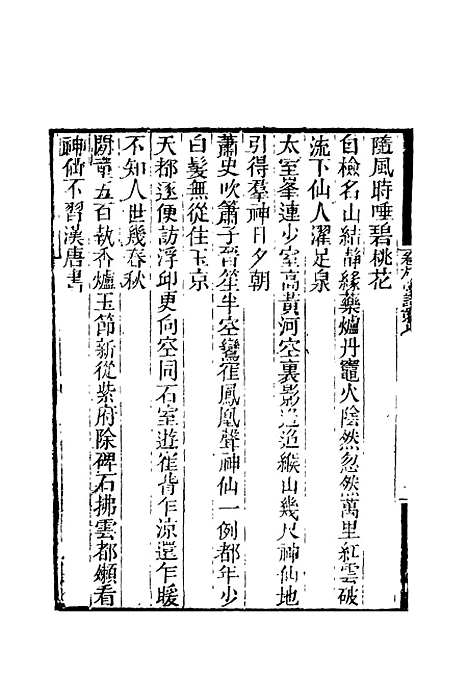 隨風時唾碧桃花
自檢名山結靜緣藥爐丹竈火陰然忽然萬里紅雲破
流下仙人濯足泉
太室峯連少室高黃河空裏影迢迢緱山幾尺神仙地
引得羣神日夕朝
蕭史吹簫子晉笙半空鸞隺鳳凰聲神仙一例都年少
白髮無從住玉京
天都逐便訪浮邱更向空同石室遊隺背乍涼還乍暖
不知人世幾春秋
閒章五百執香爐玉節新從紫府除碑石拂雲都嬾看
神仙不習漢唐書